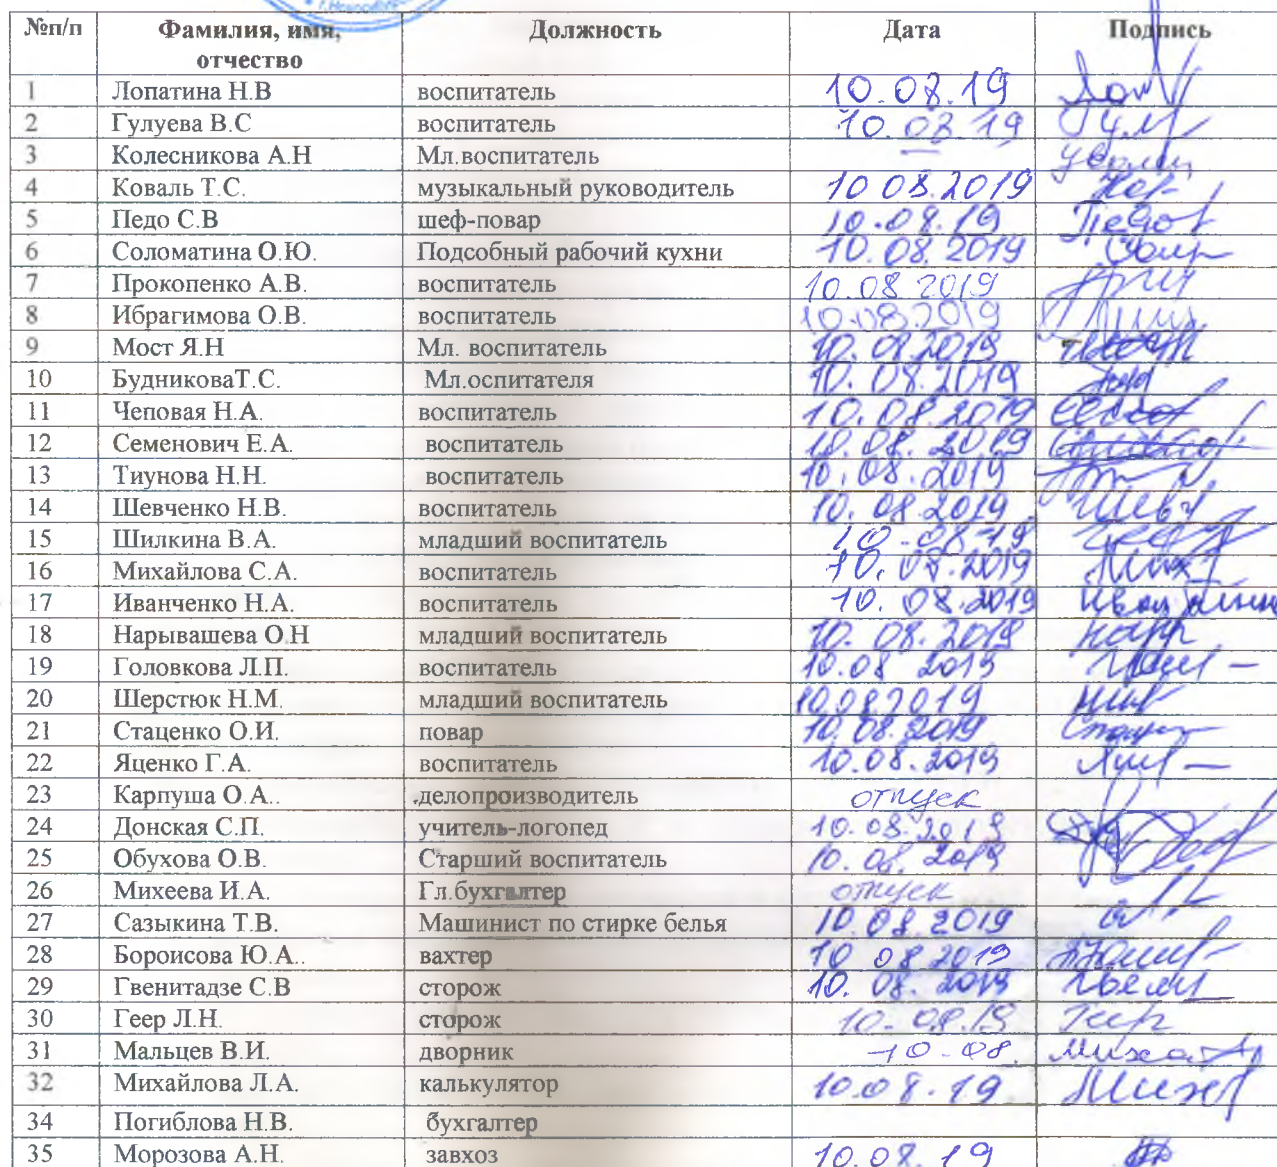 г.Новоси
№п/п Фамилия, имя, отчество Должность Дата Подпись
1 Лопатина Н.В воспитатель 10.08.19
2 Гулуева В.С воспитатель 10.08.19
3 Колесникова А.Н Мл.воспитатель уволен
4 Коваль Т.С. музыкальный руководитель 10 08.2019
5 Педо С.В шеф-повар 10.08.19
6 Соломатина О.Ю. Подсобный рабочий кухни 10.08.2019
7 Прокопенко А.В. воспитатель 10.08 2019
8 Ибрагимова О.В. воспитатель 10.08.2019
9 Мост Я.Н Мл. воспитатель 10.08.2019
10 БудниковаТ.С. Мл.оспитателя 10.08.2019
11 Чеповая Н.А. воспитатель 10.08.2019
12 Семенович Е.А. воспитатель 10.08.2019
13 Тиунова Н.Н. воспитатель 10.08.2019
14 Шевченко Н.В. воспитатель 10.08.2019 Шевч
15 Шилкина В.А. младший воспитатель 10-08-19
16 Михайлова С.А. воспитатель 10.08.2019
17 Иванченко Н.А. воспитатель 10.08.2019
18 Нарывашева О.Н младший воспитатель 10.08.2019
19 Головкова Л.П. воспитатель 10.08 2019
20 Шерстюк Н.М. младший воспитатель 10.08 2019
21 Стаценко О.И. повар 10.08.2019
22 Яценко Г.А. воспитатель 10.08.2019
23 Карпуша О.А.. делопроизводитель отпуск
24 Донская С.П. учитель-логопед 10.08.2019
25 Обухова О.В. Старший воспитатель 10.08.2019
26 Михеева И.А. Гл.бухгалтер отпуск
27 Сазыкина Т.В. Машинист по стирке белья 10.08.2019
28 Бороисова Ю.А.. вахтер 10 08 2019
29 Гвенитадзе С.В сторож 10.08.2019
30 Геер Л.Н. сторож 10-08.19
31 Мальцев В.И. дворник 10-08.
32 Михайлова Л.А. калькулятор 10.08.19
34 Погиблова Н.В. бухгалтер
35 Морозова А.Н. завхоз 10.08.19